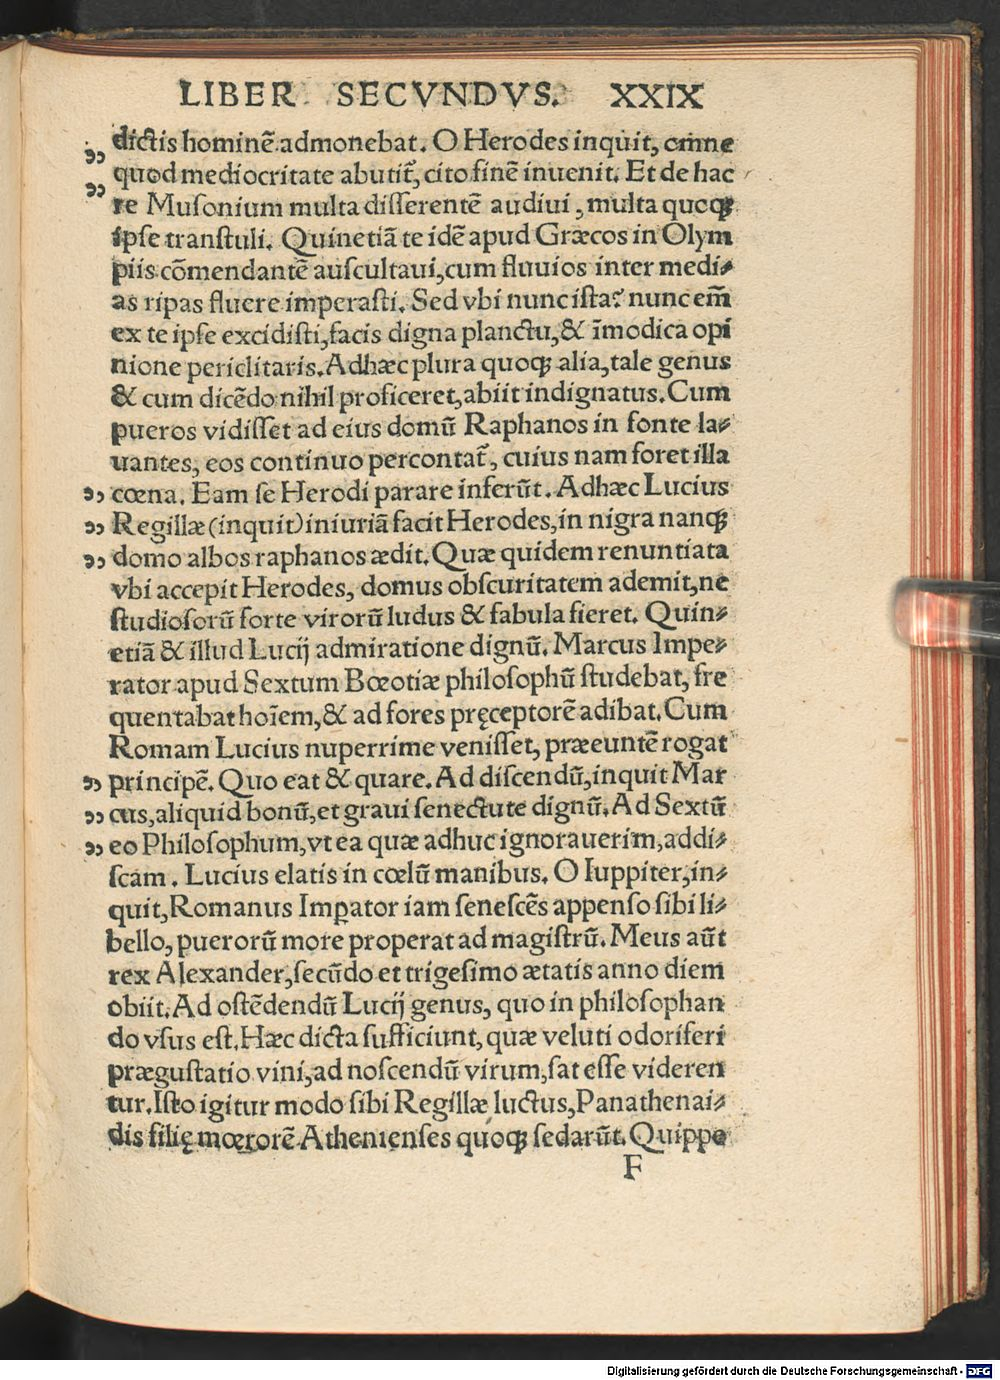 LIBER SECVNDVS. XXIX
dictis hominē admonebat. O Herodes inquit, omne
„ quod mediocritate abutit᷑, cito finē inuenit. Et de hac
„ re Muſonium multa diſſerentē audiui, multa quoqꝫ
ipſe tranſtuli. Quinetiā te idē apud Græcos in Olym
piis cōmendantē auſcultaui, cum fluuios inter medi⸗
as ripas fluere imperaſti. Sed vbi nunc iſta? nunc em̄
ex te ipſe excidiſti, facis digna planctu, & īmodica opi
nione periclitaris. Adhæc plura quoqꝫ alia, tale genus
& cum dicēdo nihil proficeret, abiit indignatus. Cum
pueros vidiſſet ad eius domū Raphanos in fonte la⸗
uantes, eos continuo percontat᷑, cuius nam foret illa
„ cœna. Eam ſe Herodi parare inferūt. Adhæc Lucius
„ Regillæ (inquit) iniuriā facit Herodes, in nigra nanqꝫ
„ domo albos raphanos ædit. Quæ quidem renuntiata
vbi accepit Herodes, domus obſcuritatem ademit, ne
ſtudioſorū forte virorū ludus & fabula fieret. Quin⸗
etiā & illud Lucij admiratione dignū. Marcus Impe⸗
rator apud Sextum Bœotiæ philoſophū ſtudebat, fre
quentabat hoīem, & ad fores pręceptorē adibat. Cum
Romam Lucius nuperrime veniſſet, præeuntē rogat
„ principē. Quo eat & quare. Ad diſcendū, inquit Mar
„ cus, aliquid bonū, et graui ſenectute dignū. Ad Sextū
„ eo Philoſophum, vt ea quæ adhuc ignorauerim, addi⸗
ſcam. Lucius elatis in cœlū manibus. O Iuppiter, in⸗
quit, Romanus Imꝑator iam ſeneſcēs appenſo ſibi li⸗
bello, puerorū more properat ad magiſtrū. Meus aūt
rex Alexander, ſecūdo et trigeſimo ætatis anno diem
obiit. Ad oſtēdendū Lucij genus, quo in philoſophan
do vſus eſt. Hæc dicta ſufficiunt, quæ veluti odoriferi
prægustatio vini, ad noſcendū virum, ſat eſſe videren
tur. Iſto igitur modo ſibi Regillæ luctus, Panathenai⸗
dis filię mœrorē Athenienſes quoqꝫ ſedarūt. Quippe
F
Digitalisierung gefördert durch die Deutsche Forschungsgemeinschaft - DFG